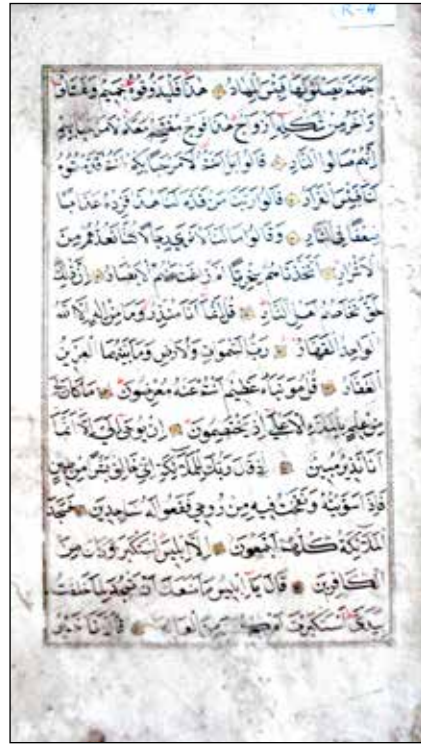 R-4
جهنم يصلونها فبئس المهاد هذا فليذوقوه حميم وغساق
وآخر من شكله ازواج هذا فوج مقتحم معكم لا مرحبا بهم
انهم صالوا النار قالوا بل انتم لا مرحبا بكم انتم قدمتموه
لنا فبئس القرار قالوا ربنا من قدم لنا هذا فزده عذابا
ضعفا في النار وقالوا ما لنا لا نرى رجالا كنا نعدهم من
الاشرار اتخذناهم سخريا ام زاغت عنهم الابصار ان ذلك
لحق تخاصم اهل النار قل انما انا منذر وما من اله الا الله
الواحد القهار رب السموات والارض وما بينهما العزيز
الغفار قل هو نبأ عظيم انتم عنه معرضون ما كان لي
من علم بالملاء الاعلى اذ يختصمون ان يوحى الي الا انما
انا نذير مبين اذ قال ربك للملائكة اني خالق بشرا من طين
فاذا سويته ونفخت فيه من روحي فقعوا له ساجدين فسجد
الملائكة كلهم اجمعون الا ابليس استكبر وكان من
الكافرين قال يا ابليس ما منعك ان تسجد لما خلقت
بيدي استكبرت ام كنت من العالين قال انا خير